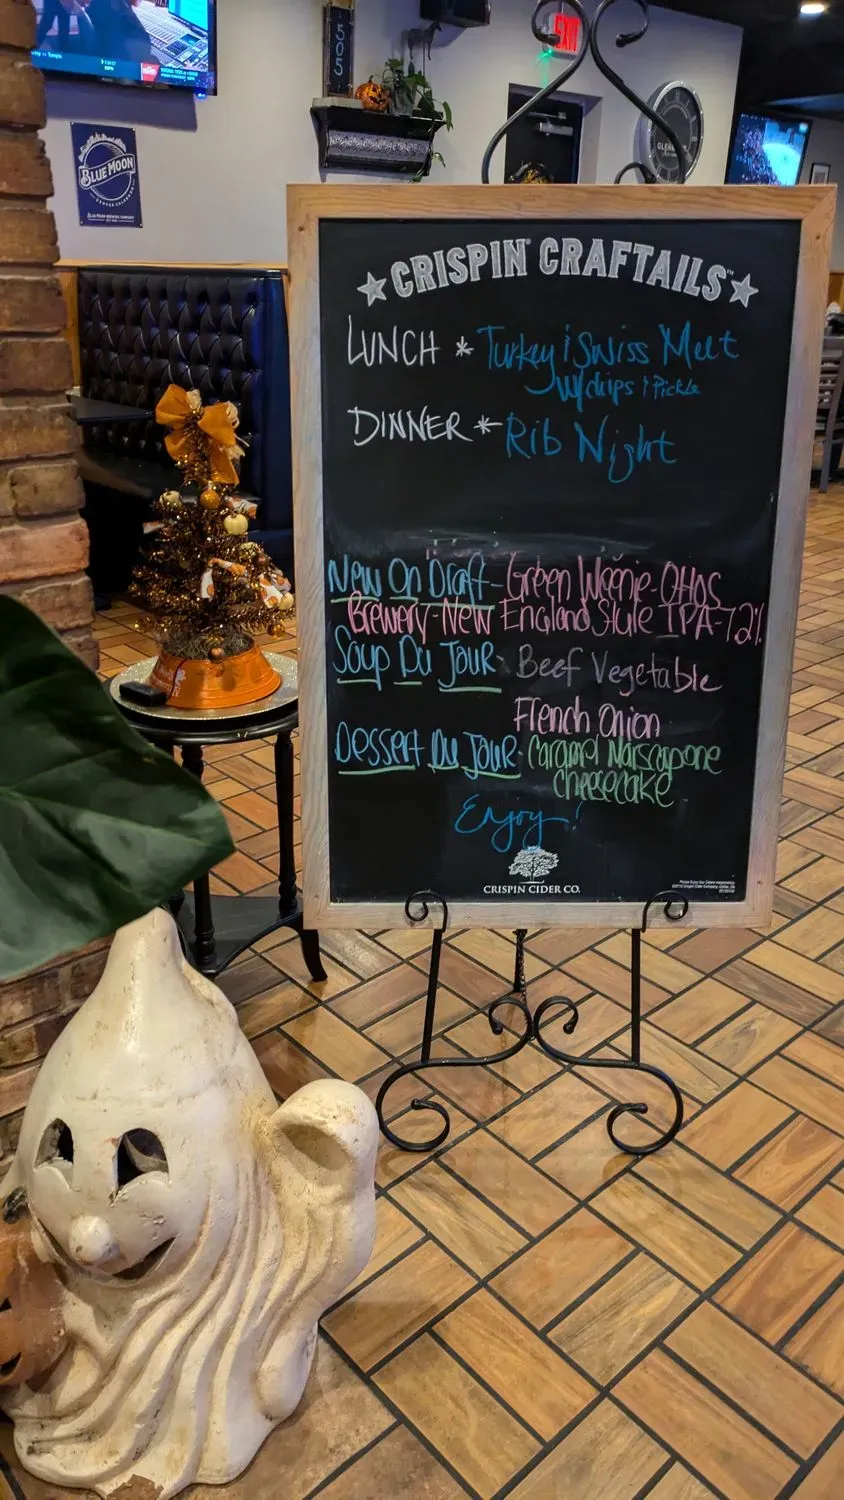 505
EXIT
BLUE MOON
BLUE MOON BREWING COMPANY
CRISPIN® CRAFTAILS™
LUNCH * Turkey & Swiss Melt
w/chips & Pickle
DINNER * Rib Night
New On Draft - Green Weenie - OHNS
Brewery - New England Style IPA - 7.2%
Soup Du Jour - Beef Vegetable
French Onion
Dessert Du Jour - Caramel Marscapone
cheesecake
Enjoy!
CRISPIN CIDER CO.